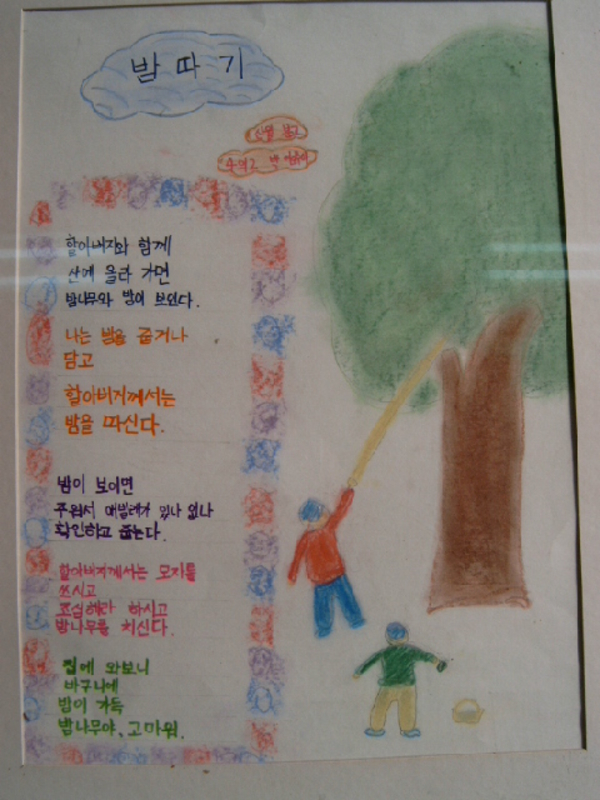 밤 따 기
산월 분교
할아버지와 함께
산에 올라 가면
밤나무와 밤이 보인다.
나는 밤을 줍거나
담고
할아버지께서는
밤을 따신다.
밤이 보이면
주워서 애벌레가 있나 없나
확인하고 줍는다.
할아버지께서는 모자를
쓰시고
조심해라 하시고
밤나무를 치신다.
집에 와보니
바구니에
밤이 가득
밤나무야, 고마워.